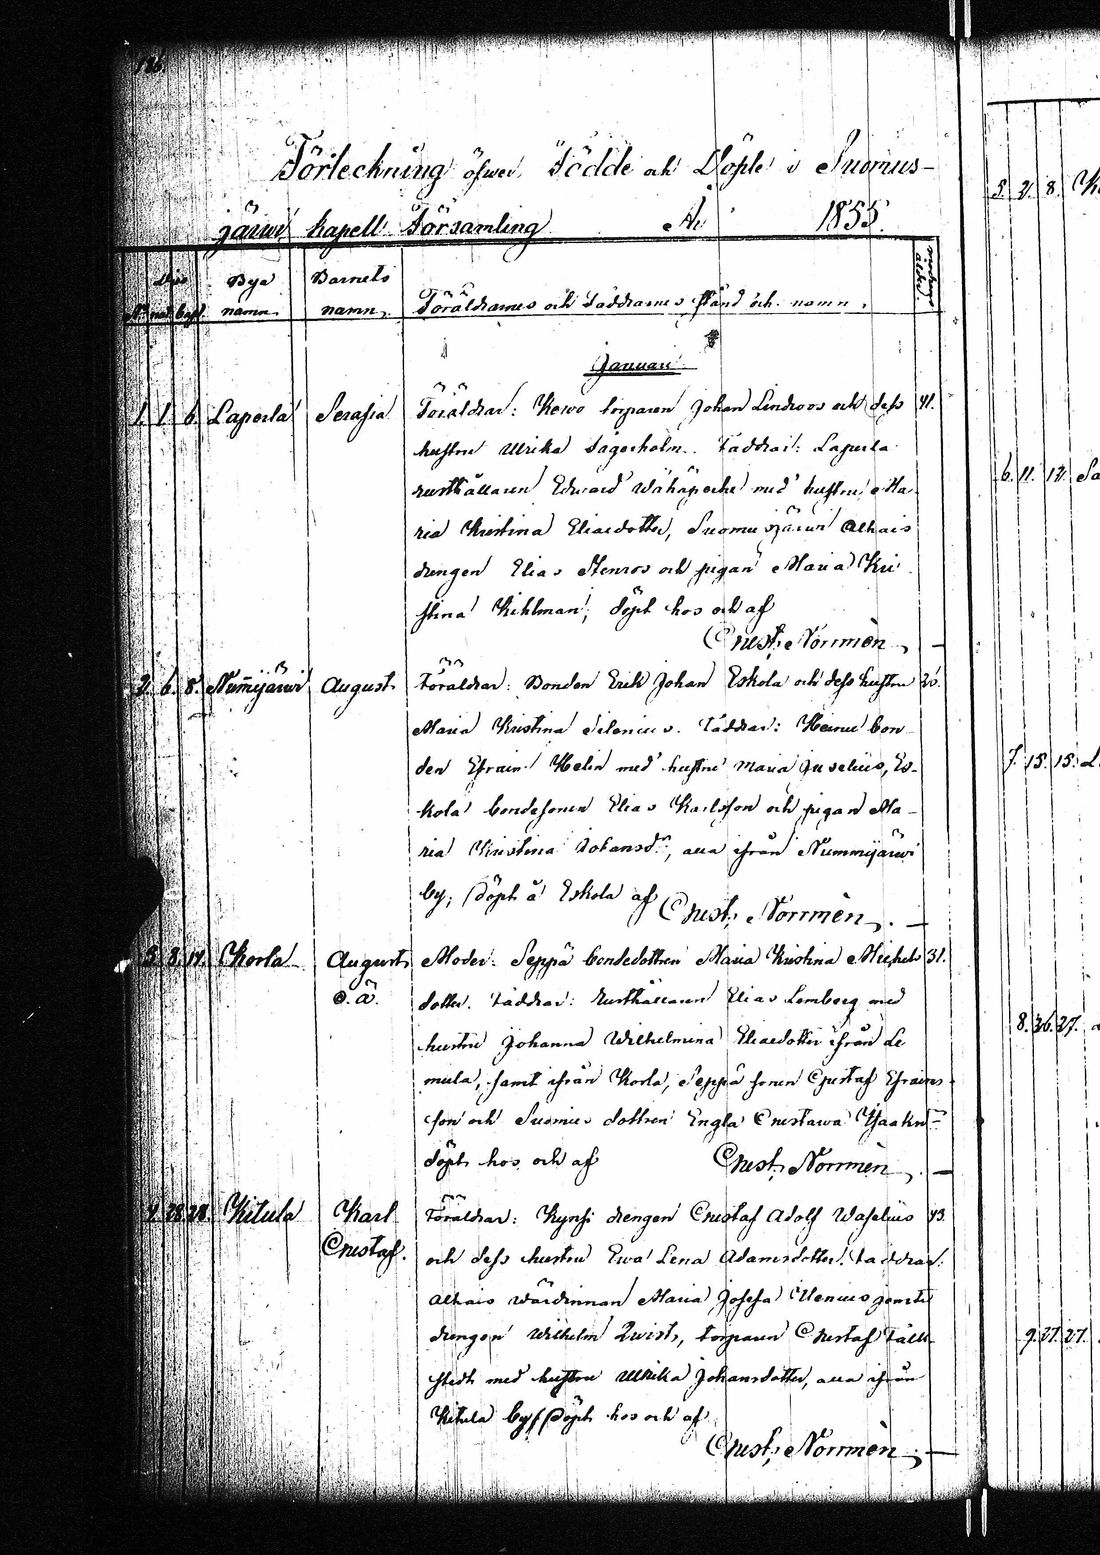 186.
Förteckning öfwer Födde och Döpte i Suomus-
järwi kapell Församling År 1855.
N:o nat. bapt. Bya namn. Barnets namn. Föräldrarnes och Faddrarnes stånd och namn.
Januari
1. 1. 6. Laperla Serafia Föräldrar: Kerwo torparen Johan Lindroos och dess 41.
hustru Ulrika Sägerholm. Faddrar: Laperla
rusthållaren Edward Wähäperhe med hustru Ma-
ria Kristina Eliaedotter, Suomusjärwi Alhais
drengen Elias Stenros och pigan Maria Kri
stina Kihlman; döpt hos och af
Gust. Norrmén. —
2. 6. 8. Nummijärwi August Föräldrar: Bonden Erik Johan Eskola och dess hustru
Maria Kristina Silenius. Faddrar: bon
den Efraim Helin med hustru Maria Juselius, Es-
kola bondesonen Elias Karlsson och pigan Ma-
ria Kristina Johansd:r, alla ifrån Nummijärwi
by; döpt å Eskola af Gust. Norrmén. —
3. 8. 14. Korla August Moder: Seppä bondedottren Maria Kristina Michels 31.
o. ä. dotter. Faddrar: Rusthållaren Elias Lemberg med
hustru Johanna Wilhelmina Eliaedotter ifrån Le
mula, samt ifrån Korla, Seppä sonen Gustaf Efraims
son och Suomies dottren Engla Gustawa Isaaksd:r
döpt hos och af Gust. Norrmén. —
4. 28. 28. Kitula Karl Föräldrar: Kynsi drengen Gustaf Adolf Waselius 43.
Gustaf. och dess hustru Ewa Lena Adamsdotter. Faddrar:
Alhais wärdinnan Maria Josefa Ulenius jemte
drengen Wilhelm Qwist, torparen Gustaf Fäll-
stedt med hustru Ulrika Johansdotter, alla ifrån
Kitula by; döpt hos och af
Gust. Norrmén. —
5. 2. 8.
6. 11. 12.
7. 15. 15.
8. 26. 27.
9. 27. 27.